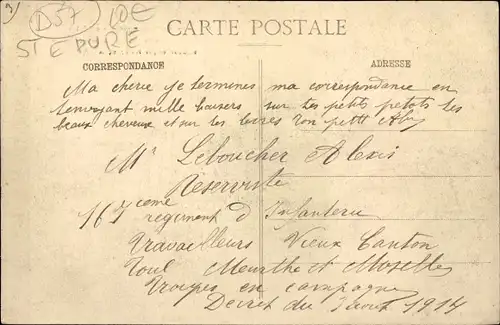 D57 LOE
ST EPURE
CARTE POSTALE
CORRESPONDANCE
ADRESSE
Ma cherie je termines ma correspondance en
t'envoyant mille baisers sur tes petits petots tes
beaux cheveux et sur tes levres ton petit
Mr Leboucher Alexis
Reserviste
167eme regiment d'Infanterie
Travailleurs Vieux Canton
Toul Meurthe et Moselle
Troupes en campagne
Decret du 3 aout 1914